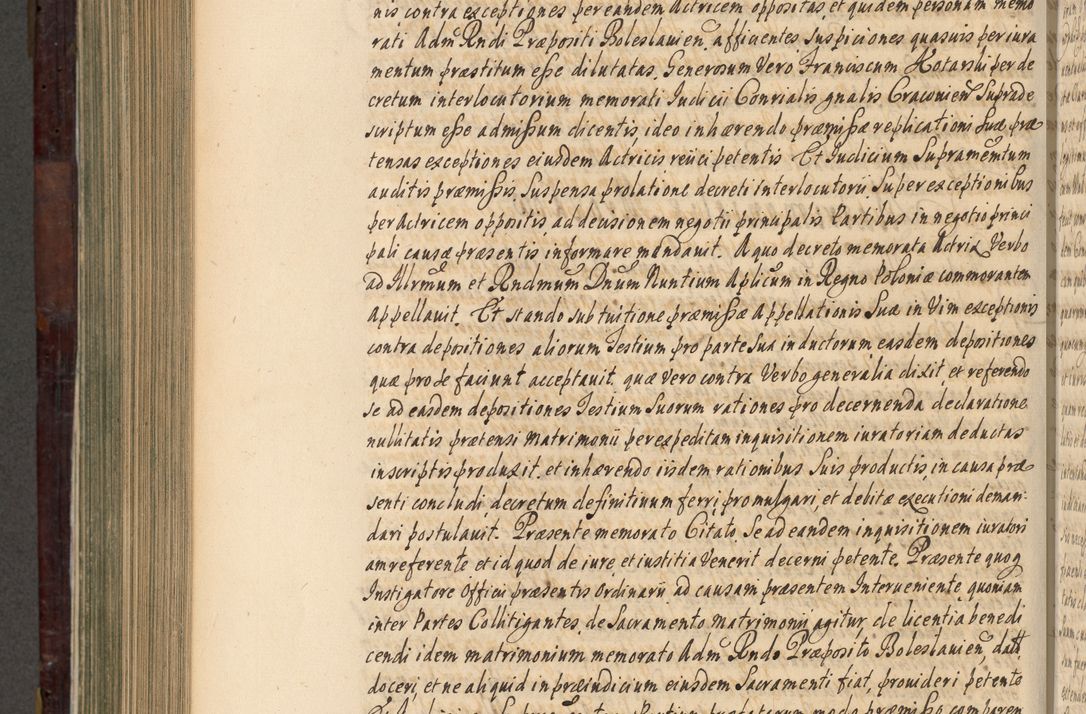 nis contra exceptiones per eandem Actricem oppositas, et quidem personam memo
rati Adm Rndi Præpositi Boleslauien, afficientes Suspiciones quasuis per iura
mentum præstitum eſse dilutatas, Generosum Vero Franciscum Kotarski per de
cretum interlocutorium memorati Iudicii Conrialis gnalis Cracouien Suprade
scriptum eſse admiſsum dicentis, ideo inhærendo præmiſsæ replicationi Suæ præ
tensas exceptiones eiusdem Actricis reiici petentis Et Iudicium Supramemtum
auditis præmiſsis, Suspensa prolatione decreti interlocutorii Super exceptionibus
per Actricem oppositis ad decisionem negotii principalis Partibus in negotio princi
pali causæ præsentis informare mandauit. A quo decreto memorata Actrix Verbo
ad Illrmum et Rndmum Dnum Nuntium Aplicum in Regno Poloniæ commorantem
Appellauit. Et stando sub tuitione præmiſsæ Appellationis Suæ in Vim exceptionis
contra depositiones aliorum Testium pro parte Sua inductorum easdem depositiones
quæ pro se faciunt acceptauit, quæ vero contra Verbo generalia dixit, et referendo
se ad easdem depositiones Testium Suorum rationes pro decernenda declaratione
nullitatis prætensi Matrimonii per expeditam inquisitionem iuratoriam deductas
in scriptis produxit, et inhærendo iisdem rationibus Suis productis, in causa præ
senti concludi, decretum definitiuum ferri, promulgari, et debitæ executioni deman-
dari postulauit. Præsente memorato Citato, Se ad eandem inquisitionem iuratori
am referente et id quod de iure et iustitia Venerit decerni petente. Præsente quoq
Instigatore Officii præsentis Ordinarii ad causam præsentem Interueniente, quoniam
inter Partes Collitigantes, de Sacramento matrimonii agitur, de licentia benedi
cendi idem matrimonium memorato Adm Rndo Præposito Boleslauien, data
doceri, et ne aliquid in præiudicium eiusdem Sacramenti fiat, prouideri petente